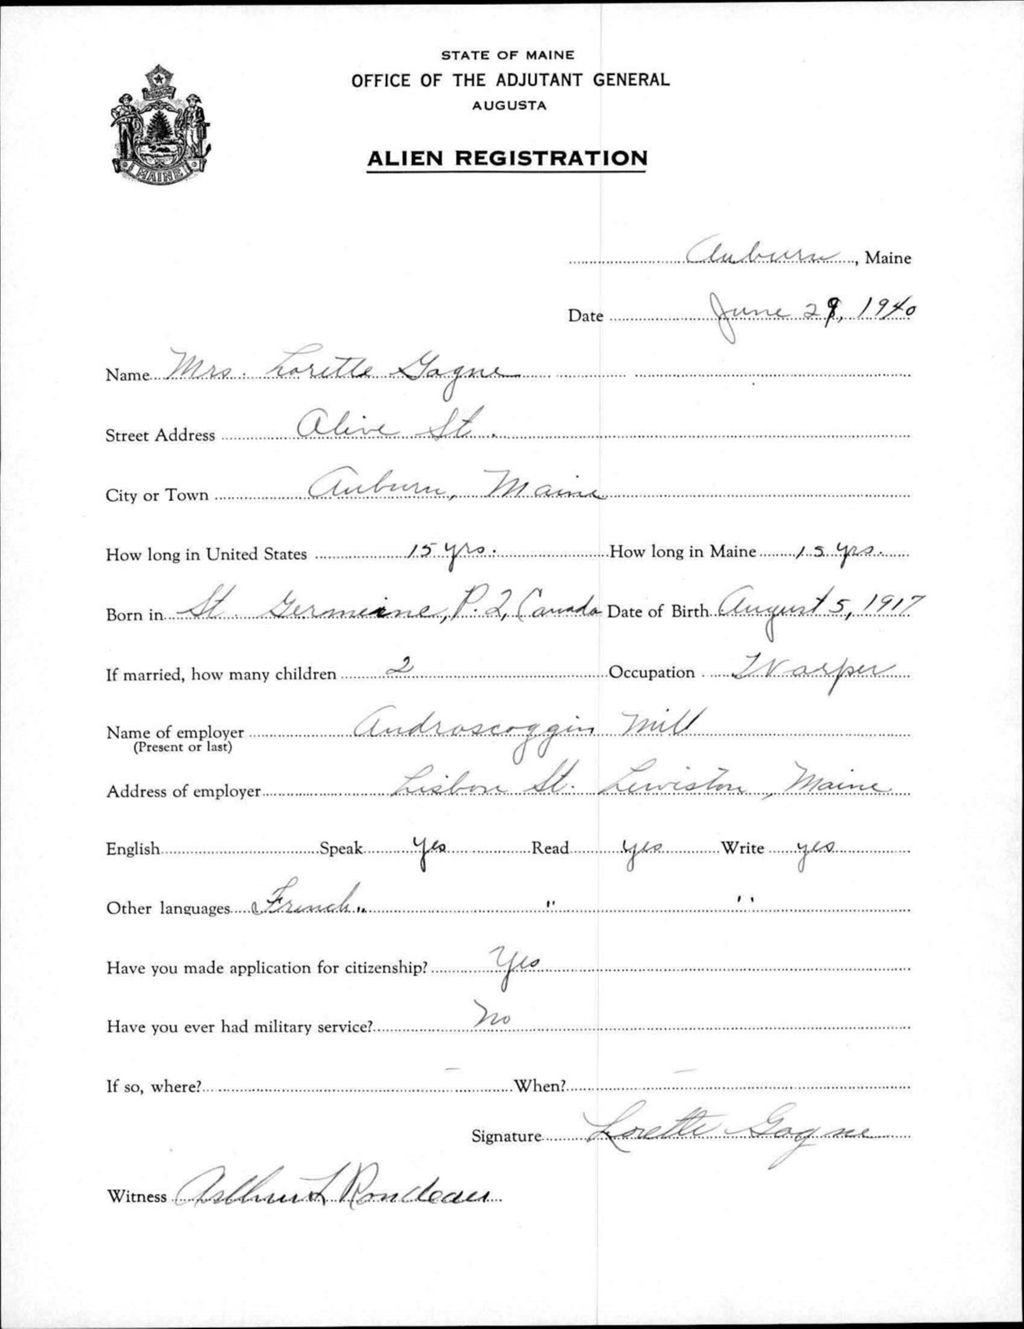 STATE OF MAINE
OFFICE OF THE ADJUTANT GENERAL
AUGUSTA
ALIEN REGISTRATION
MAINE
Auburn, Maine
Date June 29, 1940
Name Mrs. Lorette Gagne
Street Address Olive St.
City or Town Auburn, Maine
How long in United States 15 yrs. How long in Maine 15 yrs.
Born in St Germaine, P.Q, Canada Date of Birth August 5, 1917
If married, how many children 2 Occupation Warper
Name of employer Androscoggin Mill
(Present or last)
Address of employer Lisbon St. Lewiston, Maine
English Speak Yes Read yes Write yes
Other languages French " " "
Have you made application for citizenship? Yes
Have you ever had military service? No
If so, where? – When? –
Signature Lorette Gagne
Witness Arthur L Rondeau